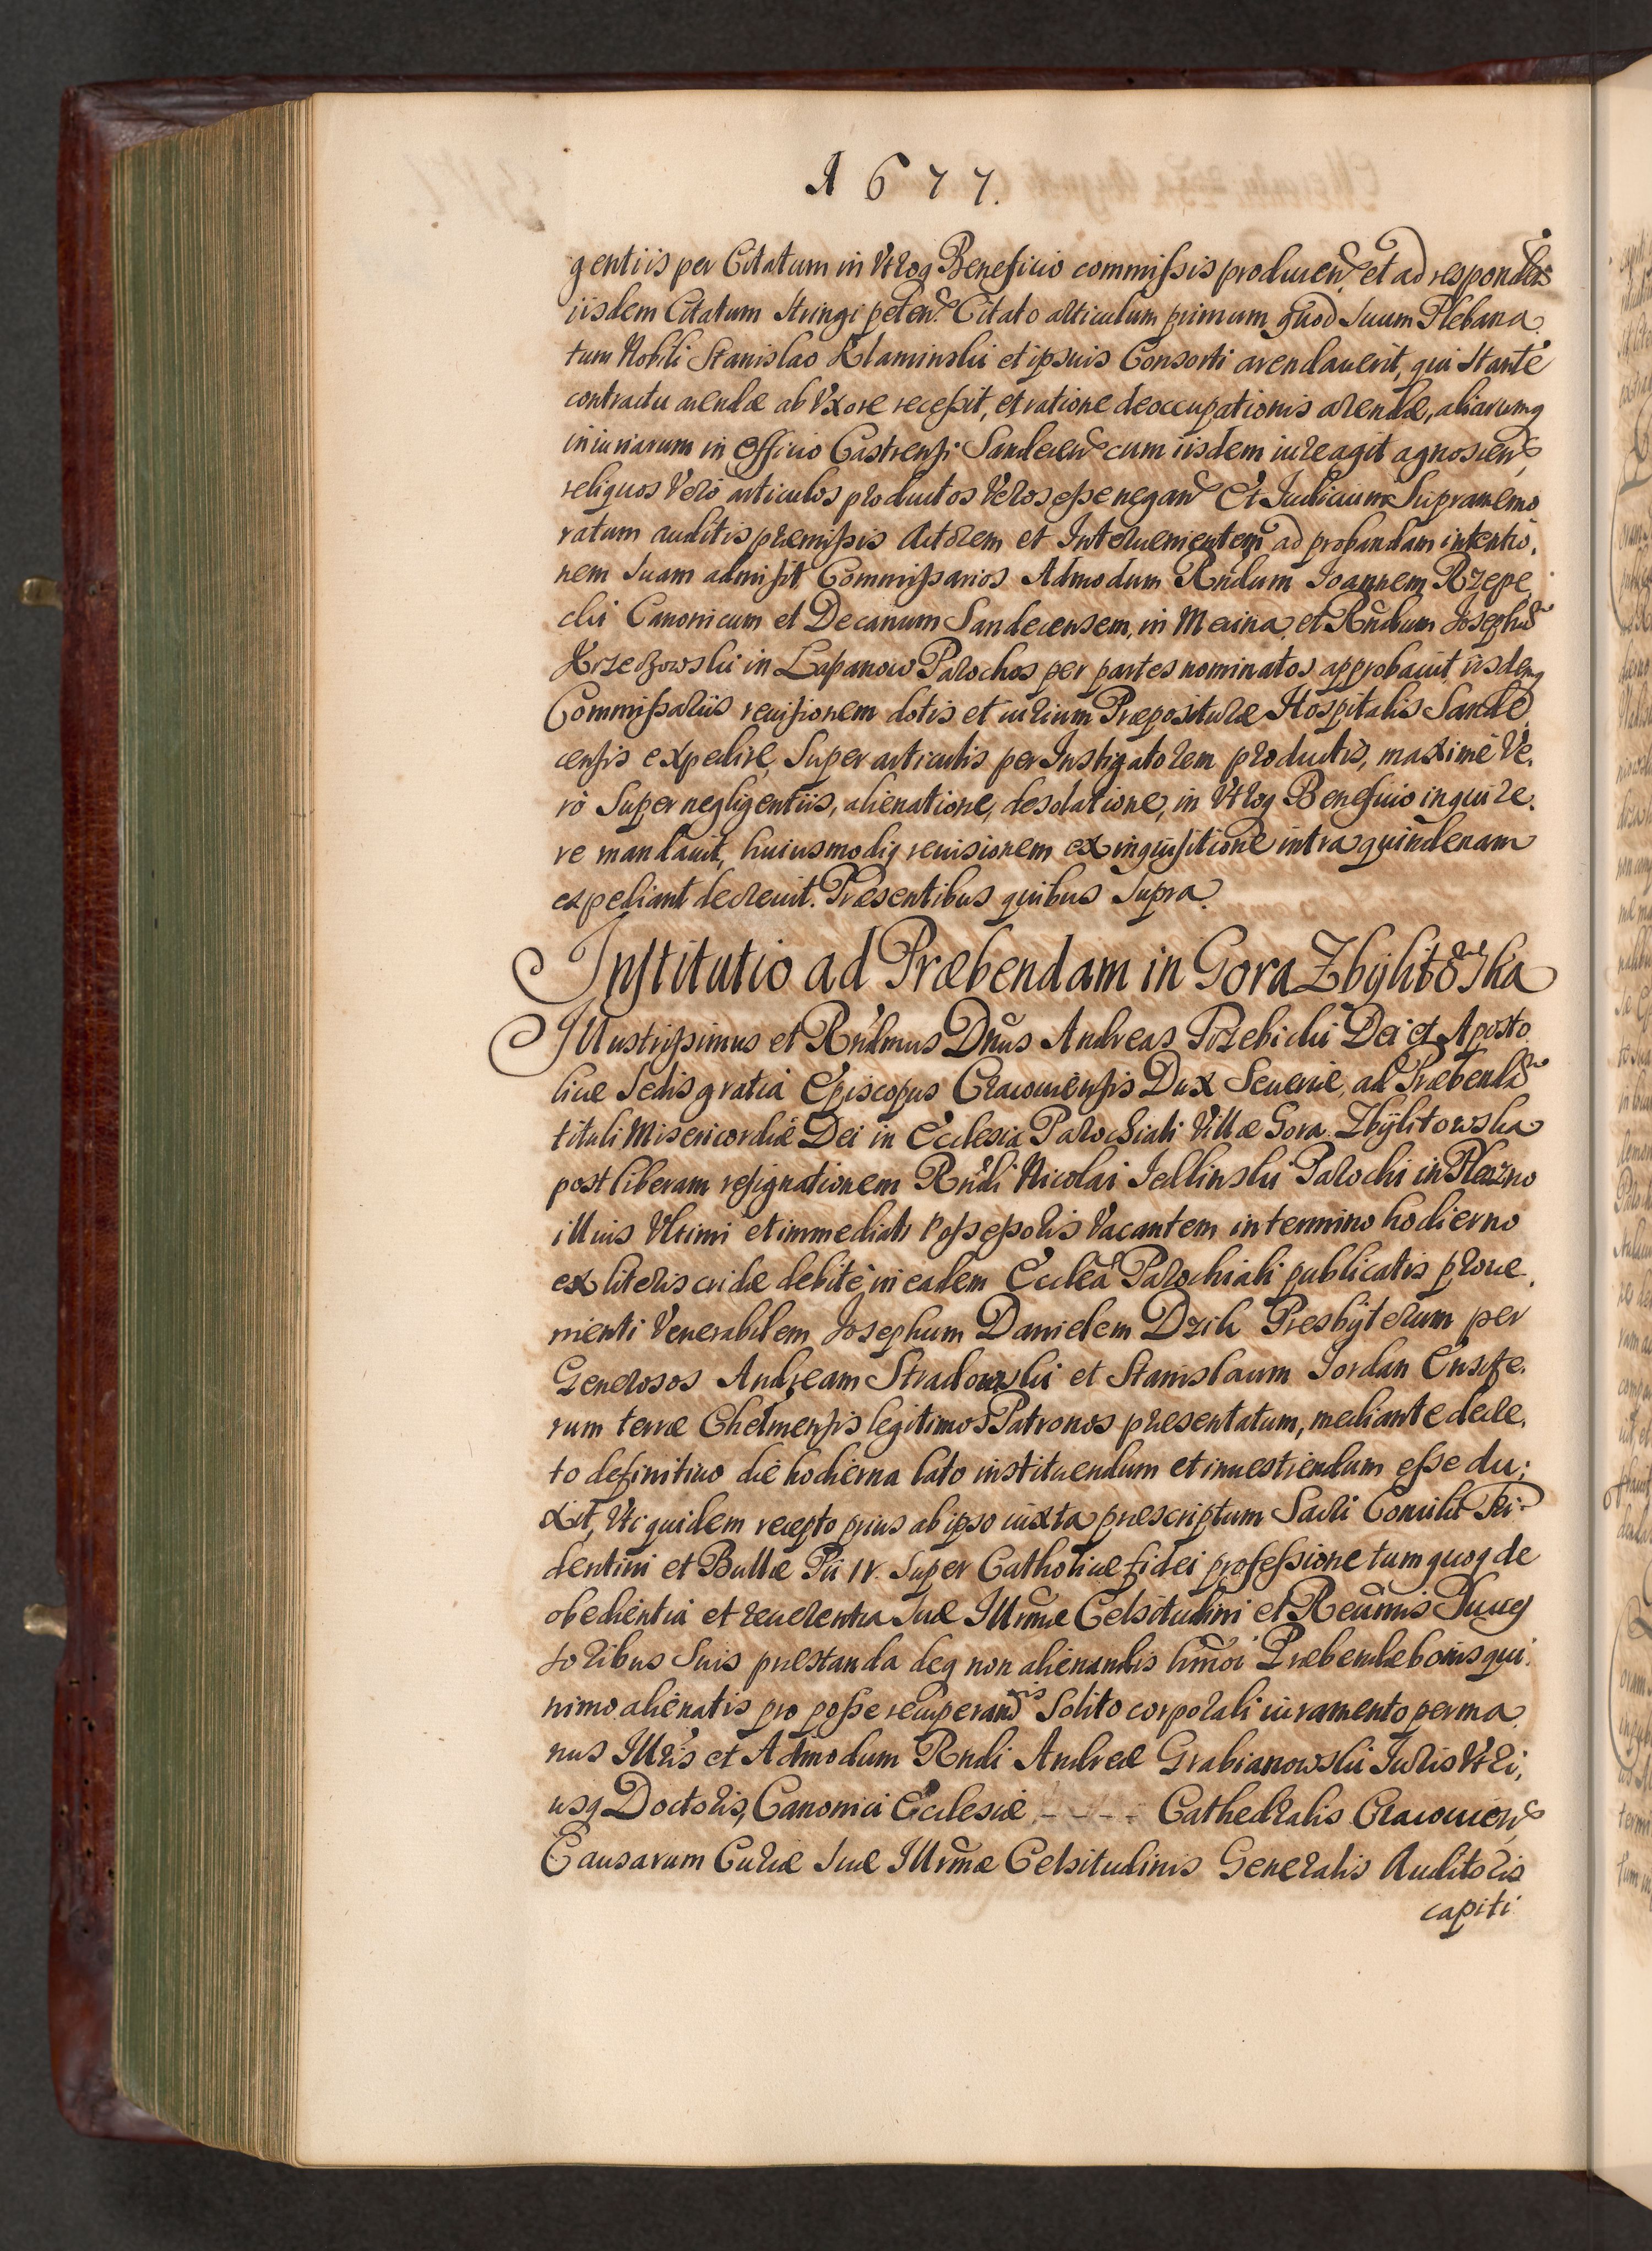 A 6 7 7.
gentiis per Citatum in Vtroq Beneficio commissis producen. et ad responden
iisdem Citatum stringi peten. Citato articulum primum quod suum Plebana
tum Nobili Stanislao Klaminski et ipsius Consorti arendauerit, qui stante
contractu arendæ ab Vxore recessit, et ratione deoccupationis arendæ, aliarumq
iniuriarum in Officio Castrensi Sandecen cum iisdem iure agit agnoscen,
reliquos Vero articulos productos Veros esse negan Et Iudicium Supramemo
ratum auditis præmissis Actorem et Interuenientem ad probandam intentio,
nem suam admisit Commissarios Admodum Rndum Ioannem Rzepe,
cki Canonicum et Decanum Sandecensem, in Mecina, et Rndum Josephu
Krzeczowski in Łapanow Parochos per partes nominatos approbauit iisdemq
Commissariis reuisionem dotis et iurium Præpositurae Hospitalis Sande,
censis expedire, Super articulis per Instigatorem productis, maxime Ve,
ro Super negligentiis, alienatione, desolatione, in Vtroq Beneficio inquire,
re mandauit, huiusmodiq reuisionem ex inquisitione intra quindenam
expediant decreuit. Præsentibus quibus Supra.
Institutio ad Præbendam in Gora Zbylitowska
Illustrissimus et Rndmus Dnus Andreas Trzebicki Dei et Aposto
licæ Sedis gratia Episcopus Cracouiensis Dux Seueriæ, ad Præbend
tituli Misericordiæ Dei in Ecclesia Parochiali Villæ Gora Zbylitowska
post liberam resignationem Rndi Nicolai Iedlinski Parochi in Plezno
illius Vltimi et immediati possessoris Vacantem in termino hodierno
ex literis cridæ debite in eadem Ecclea Parochiali publicatis proue,
nienti Venerabilem Josephum Danielem Dzik Presbyterum per
Generosos Andream Stradowski et Stanislaum Iordan Ensife,
rum terræ Chelmensis legitimos Patronos præsentatum, mediante decre,
to definitiuo die hodierna lato instituendum et inuestiendum esse du,
xit, Vti quidem recepto prius ab ipso iuxta præscriptum Sacri Concilii Tri-
dentini et Bullæ Pii IV. super Catholicæ fidei professione tum quoq de
obedientia et reuerentia suæ Illrmæ Celsitudini et Reumis Succes
soribus suis præstanda deq non alienandis hmoi Præbendæ bonis qui,
nimo alienatis pro posse recuperandis solito corporali iuramento per ma,
nus Illris et Admodum Rndi Andreæ Grabianowski Iuris Vtri,
usq Doctoris, Canonici Ecclesiæ - - - - Cathedralis Cracouien,
Causarum Curiæ suæ Illrmæ Celsitudinis Generalis Auditoris
capiti